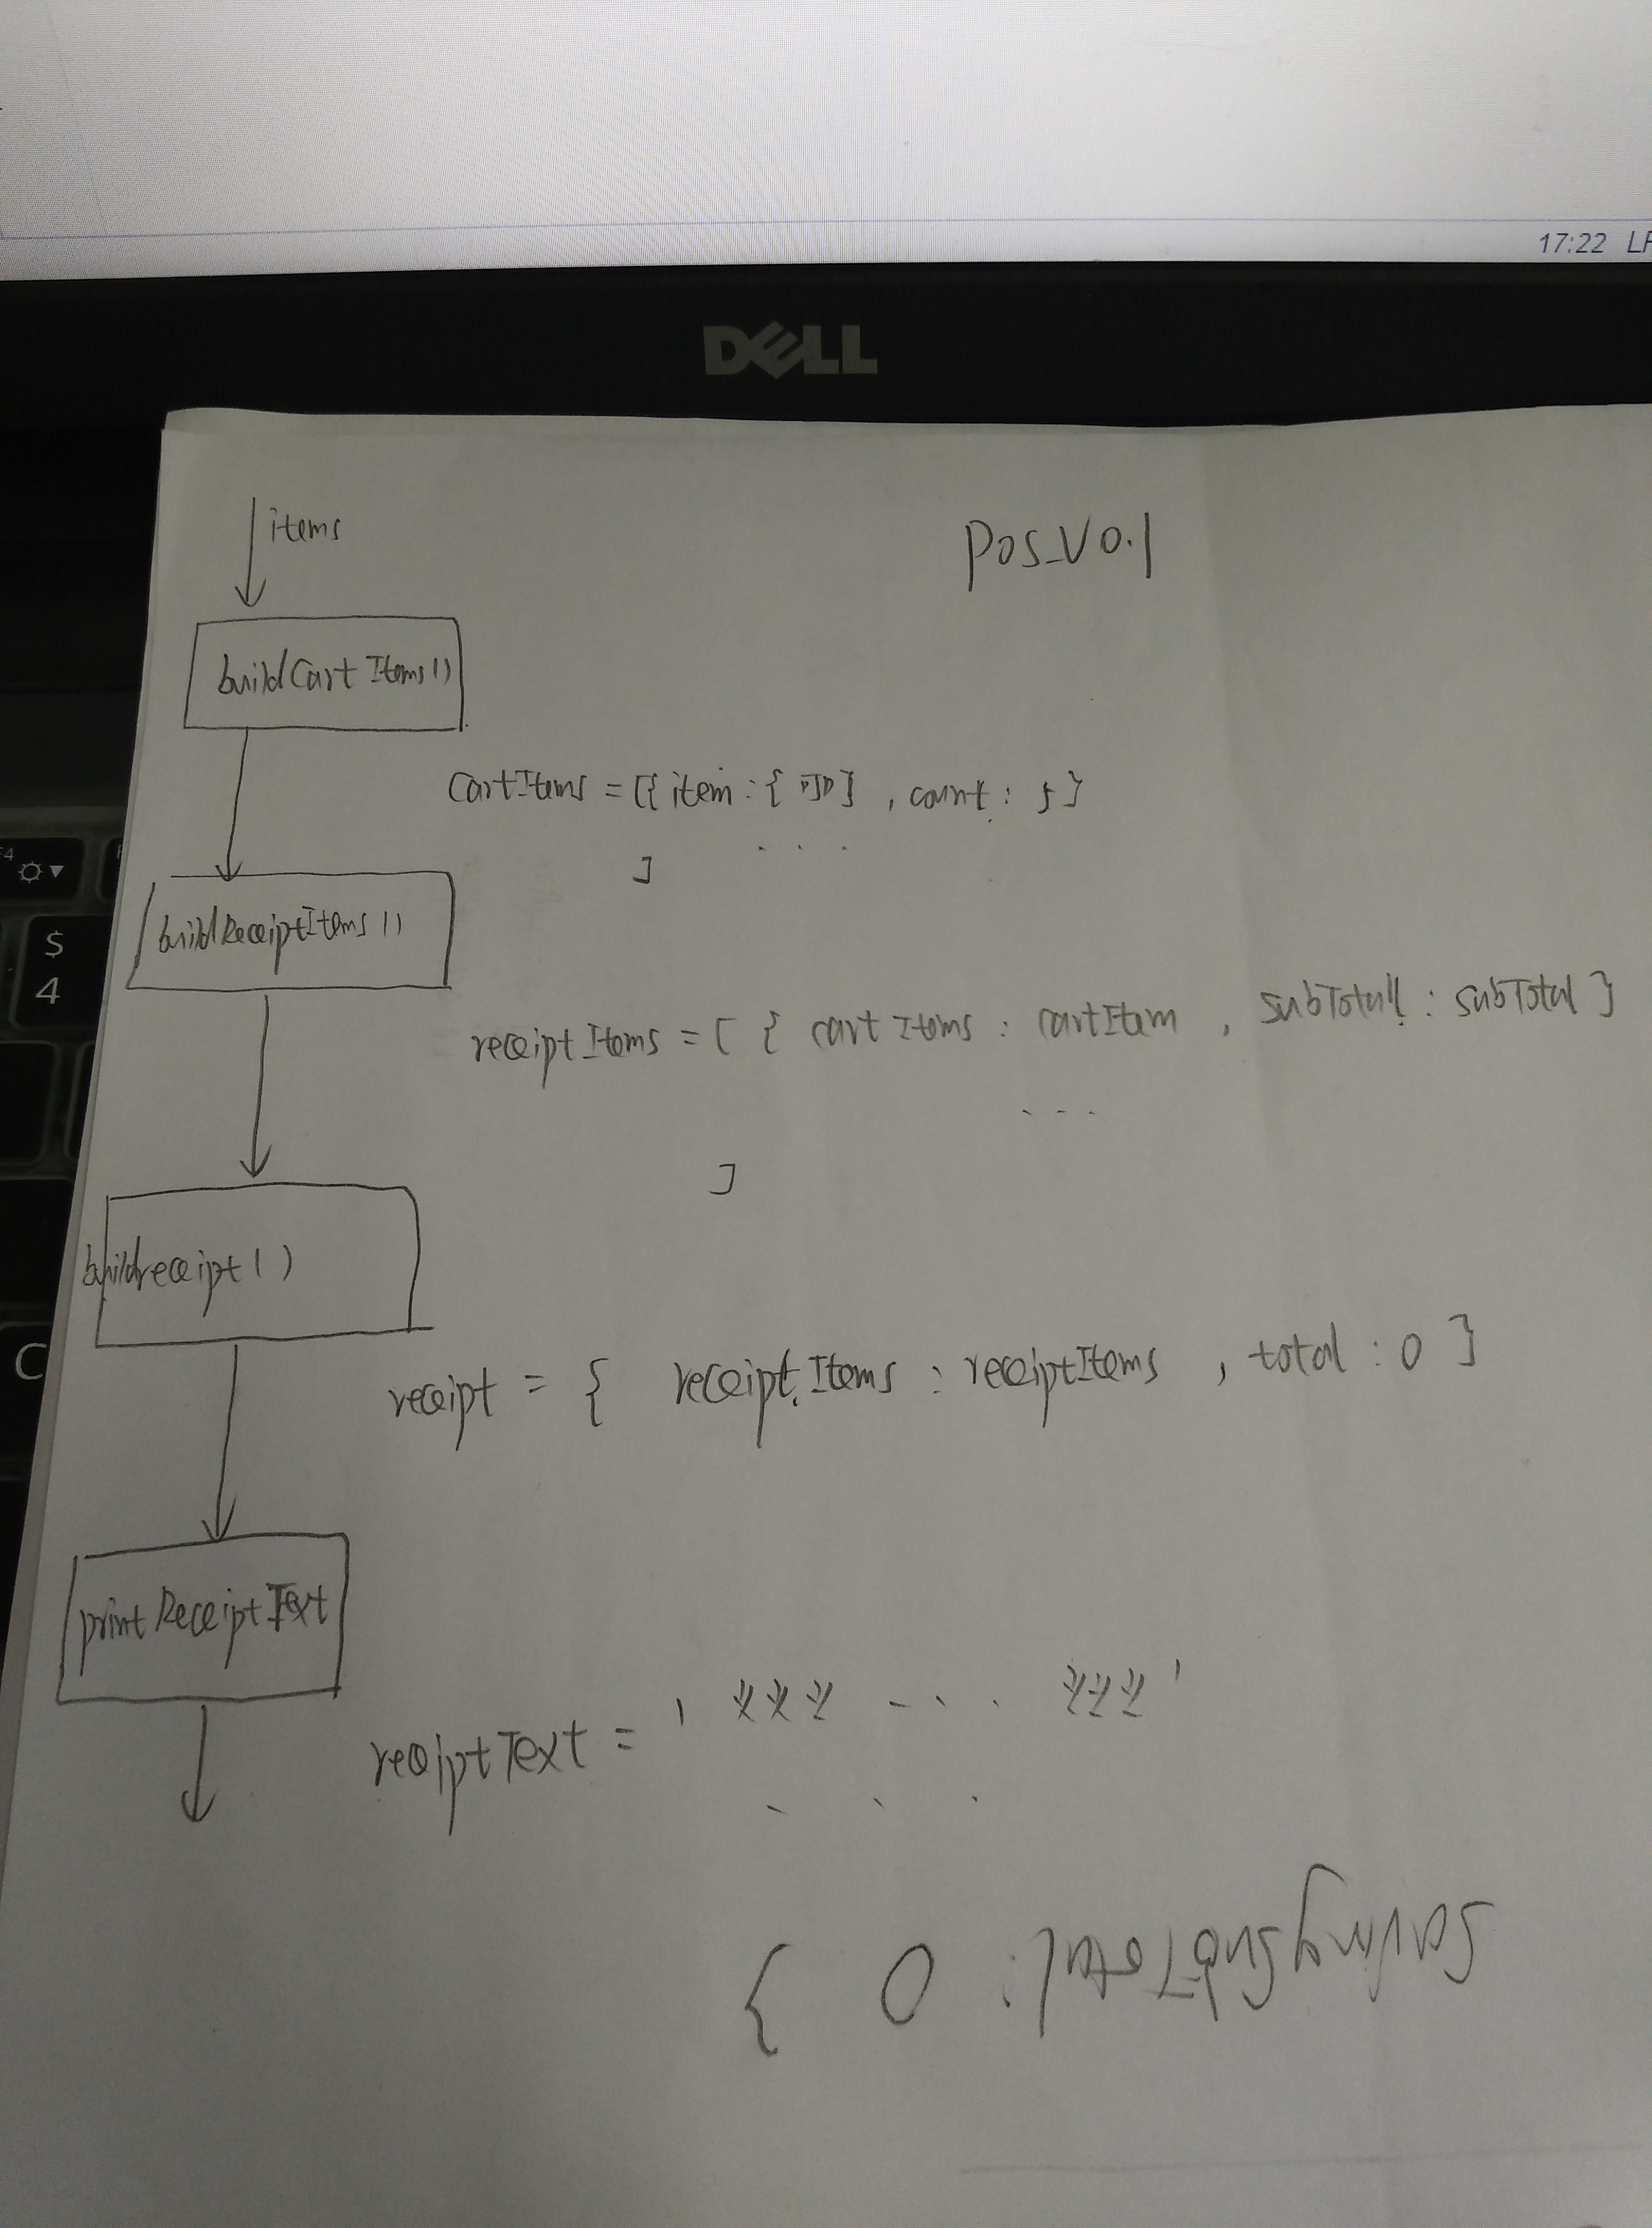 17:22 LF
DELL
items
Pos_V0.1
buildCartItems()
CartItems = [{ item : { } , count : 5 }
. . .
]
$
4
buildReceiptItems()
receiptItems = [ { cartItems : cartItem , subTotal : subTotal }
. . .
]
buildreceipt()
C
receipt = { receiptItems : receiptItems , total : 0 }
printReceiptText
receiptText = ' ... '
. . .
SavingSubTotal : 0 }